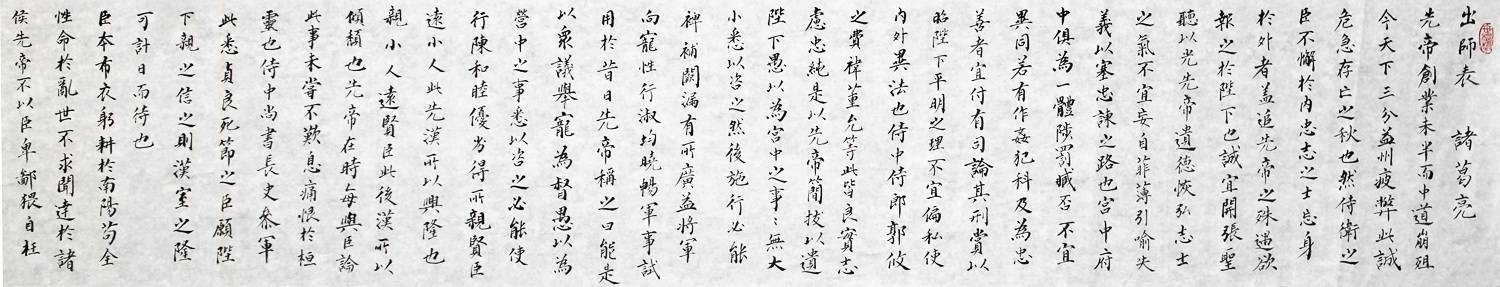 出師表 諸葛亮
先帝創業未半而中道崩殂
今天下三分益州疲弊此誠
危急存亡之秋也然侍衛之
臣不懈於內忠志之士忘身
於外者盖追先帝之殊遇欲
報之於陛下也誠宜開張聖
聽以光先帝遺德恢弘志士
之氣不宜妄自菲薄引喻失
義以塞忠諫之路也宮中府
中俱為一體陟罰臧否不宜
異同若有作姦犯科及為忠
善者宜付有司論其刑賞以
昭陛下平明之理不宜偏私使
內外異法也侍中侍郎郭攸
之費禕董允等此皆良實志
慮忠純是以先帝簡拔以遺
陛下愚以為宮中之事〻無大
小悉以咨之然後施行必能
裨補闕漏有所廣益將軍
向寵性行淑均曉暢軍事試
用於昔日先帝稱之曰能是
以衆議舉寵為督愚以為
營中之事悉以咨之必能使
行陳和睦優劣得所親賢臣
遠小人此先漢所以興隆也
親小人遠賢臣此後漢所以
傾頹也先帝在時每與臣論
此事未嘗不歎息痛恨於桓
靈也侍中尚書長史參軍
此悉貞良死節之臣願陛
下親之信之則漢室之隆
可計日而待也
臣本布衣躬耕於南陽苟全
性命於亂世不求聞達於諸
侯先帝不以臣卑鄙猥自枉